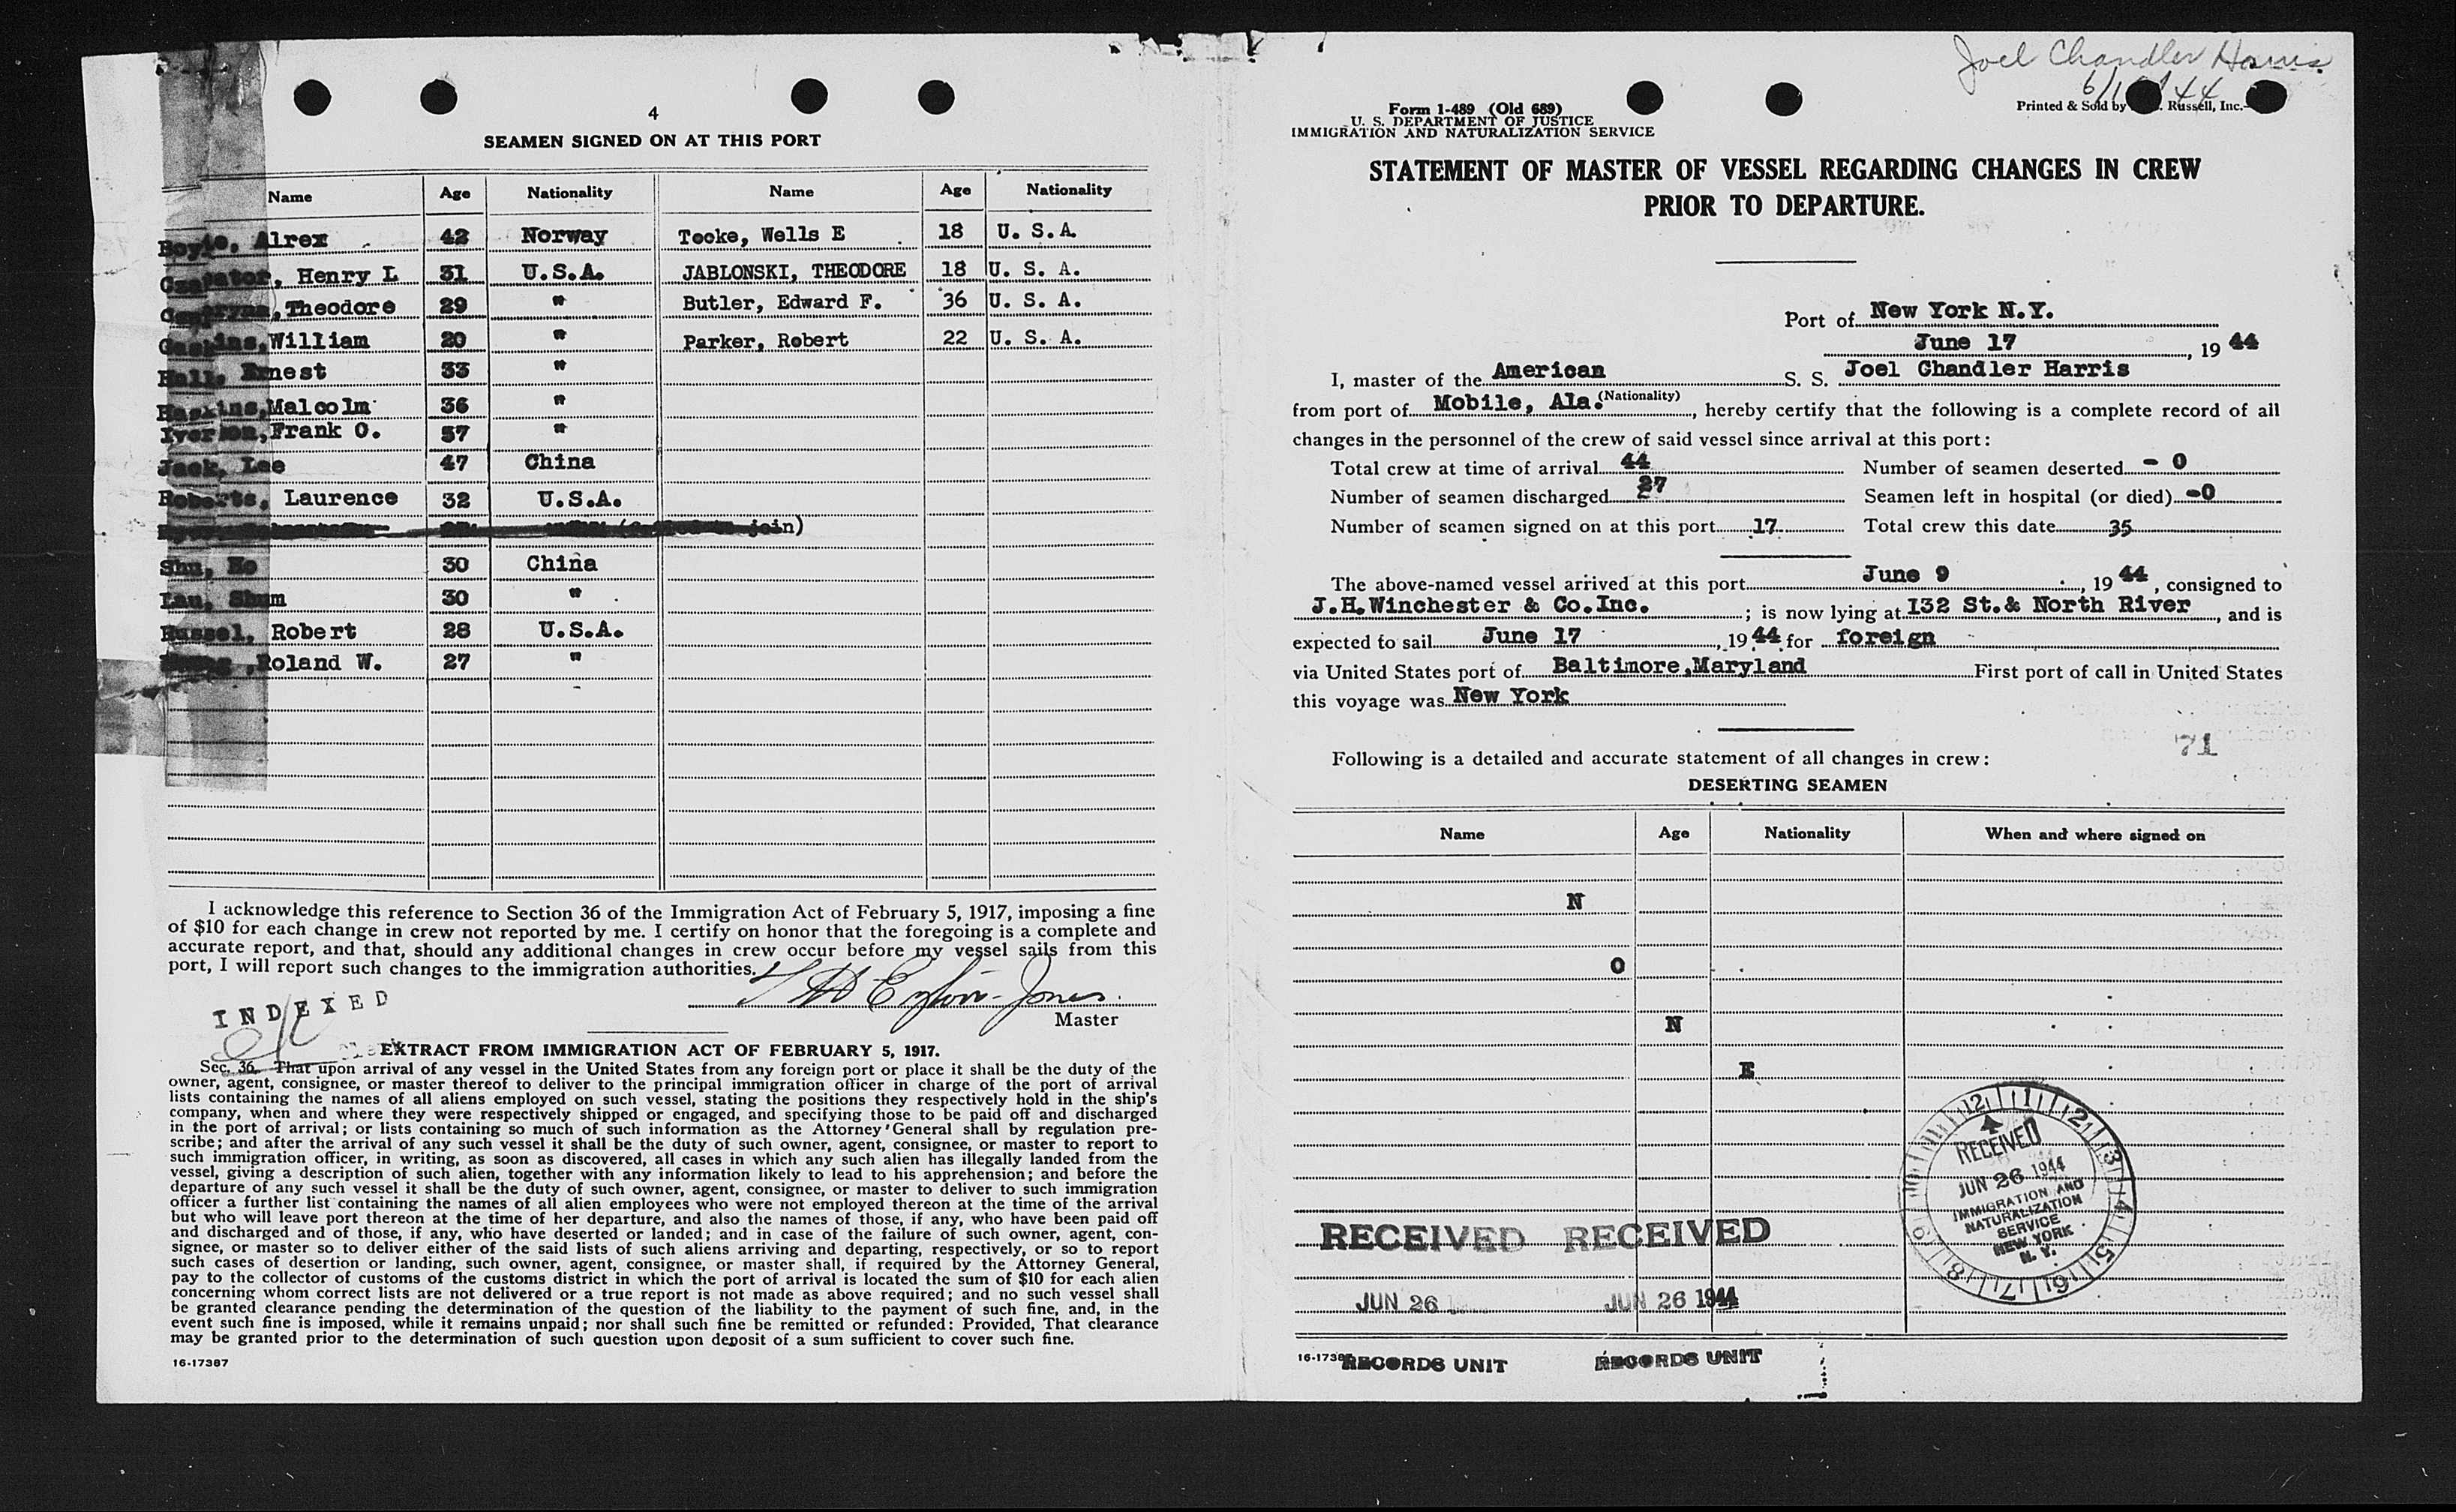 4
SEAMEN SIGNED ON AT THIS PORT
Name Age Nationality Name Age Nationality
Alrex 42 Norway Tooke, Wells E 18 U. S. A.
Henry L 31 U.S.A. JABLONSKI, THEODORE 18 U. S. A.
Theodore 29 " Butler, Edward F. 36 U. S. A.
Gaskins, William 20 " Parker, Robert 22 U. S. A.
Hall, Ernest 33 "
Haskins, Malcolm 36 "
Iverson, Frank O. 57 "
Jack, Lee 47 China
Roberts, Laurence 32 U.S.A.
join)
Shu, Ho 30 China
Lau, Shum 30 "
Russel, Robert 28 U.S.A.
, Roland W. 27 "
I acknowledge this reference to Section 36 of the Immigration Act of February 5, 1917, imposing a fine
of $10 for each change in crew not reported by me. I certify on honor that the foregoing is a complete and
accurate report, and that, should any additional changes in crew occur before my vessel sails from this
port, I will report such changes to the immigration authorities.
INDEXED
Master
EXTRACT FROM IMMIGRATION ACT OF FEBRUARY 5, 1917.
Sec. 36. That upon arrival of any vessel in the United States from any foreign port or place it shall be the duty of the
owner, agent, consignee, or master thereof to deliver to the principal immigration officer in charge of the port of arrival
lists containing the names of all aliens employed on such vessel, stating the positions they respectively hold in the ship's
company, when and where they were respectively shipped or engaged, and specifying those to be paid off and discharged
in the port of arrival; or lists containing so much of such information as the Attorney General shall by regulation pre-
scribe; and after the arrival of any such vessel it shall be the duty of such owner, agent, consignee, or master to report to
such immigration officer, in writing, as soon as discovered, all cases in which any such alien has illegally landed from the
vessel, giving a description of such alien, together with any information likely to lead to his apprehension; and before the
departure of any such vessel it shall be the duty of such owner, agent, consignee, or master to deliver to such immigration
officer a further list containing the names of all alien employees who were not employed thereon at the time of the arrival
but who will leave port thereon at the time of her departure, and also the names of those, if any, who have been paid off
and discharged and of those, if any, who have deserted or landed; and in case of the failure of such owner, agent, con-
signee, or master so to deliver either of the said lists of such aliens arriving and departing, respectively, or so to report
such cases of desertion or landing, such owner, agent, consignee, or master shall, if required by the Attorney General,
pay to the collector of customs of the customs district in which the port of arrival is located the sum of $10 for each alien
concerning whom correct lists are not delivered or a true report is not made as above required; and no such vessel shall
be granted clearance pending the determination of the question of the liability to the payment of such fine, and, in the
event such fine is imposed, while it remains unpaid; nor shall such fine be remitted or refunded: Provided, That clearance
may be granted prior to the determination of such question upon deposit of a sum sufficient to cover such fine.
16-17387
Joel Chandler Harris
Form 1-489 (Old 689)
U. S. DEPARTMENT OF JUSTICE
IMMIGRATION AND NATURALIZATION SERVICE
Printed & Sold by Russell, Inc.
STATEMENT OF MASTER OF VESSEL REGARDING CHANGES IN CREW
PRIOR TO DEPARTURE.
Port of New York N.Y.
June 17, 1944
I, master of the American S. S. Joel Chandler Harris
(Nationality)
from port of Mobile, Ala., hereby certify that the following is a complete record of all
changes in the personnel of the crew of said vessel since arrival at this port:
Total crew at time of arrival 44 Number of seamen deserted - 0
Number of seamen discharged 27 Seamen left in hospital (or died) -0
Number of seamen signed on at this port 17 Total crew this date 35
The above-named vessel arrived at this port June 9, 1944, consigned to
J.H.Winchester & Co.Inc.; is now lying at 132 St.& North River, and is
expected to sail June 17, 1944 for foreign
via United States port of Baltimore,Maryland First port of call in United States
this voyage was New York
71
Following is a detailed and accurate statement of all changes in crew:
DESERTING SEAMEN
Name Age Nationality When and where signed on
N
O
N
E
12 1 2 3 4 5 6 7 8 9 10 11
RECEIVED
JUN 26 1944
IMMIGRATION AND
NATURALIZATION
SERVICE
NEW YORK
N. Y.
RECEIVED RECEIVED
JUN 26 JUN 26 1944
RECORDS UNIT RECORDS UNIT